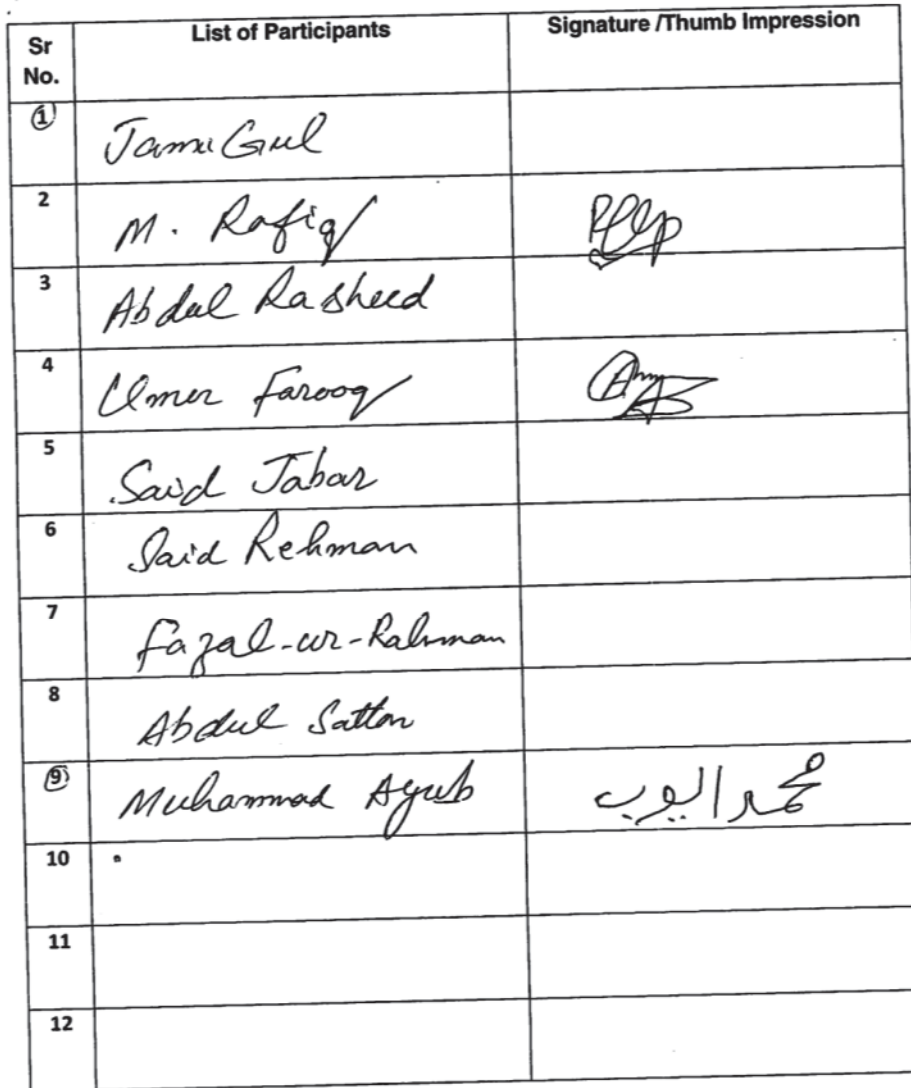 Sr No. List of Participants Signature /Thumb Impression
1 Jamu Gul
2 M. Rafiq
3 Abdul Rasheed
4 Umer Farooq
5 Said Jabar
6 Said Rehman
7 Fazal-ur-Rahman
8 Abdul Sattar
9 Muhammad Ayub محمد ایوب
10
11
12